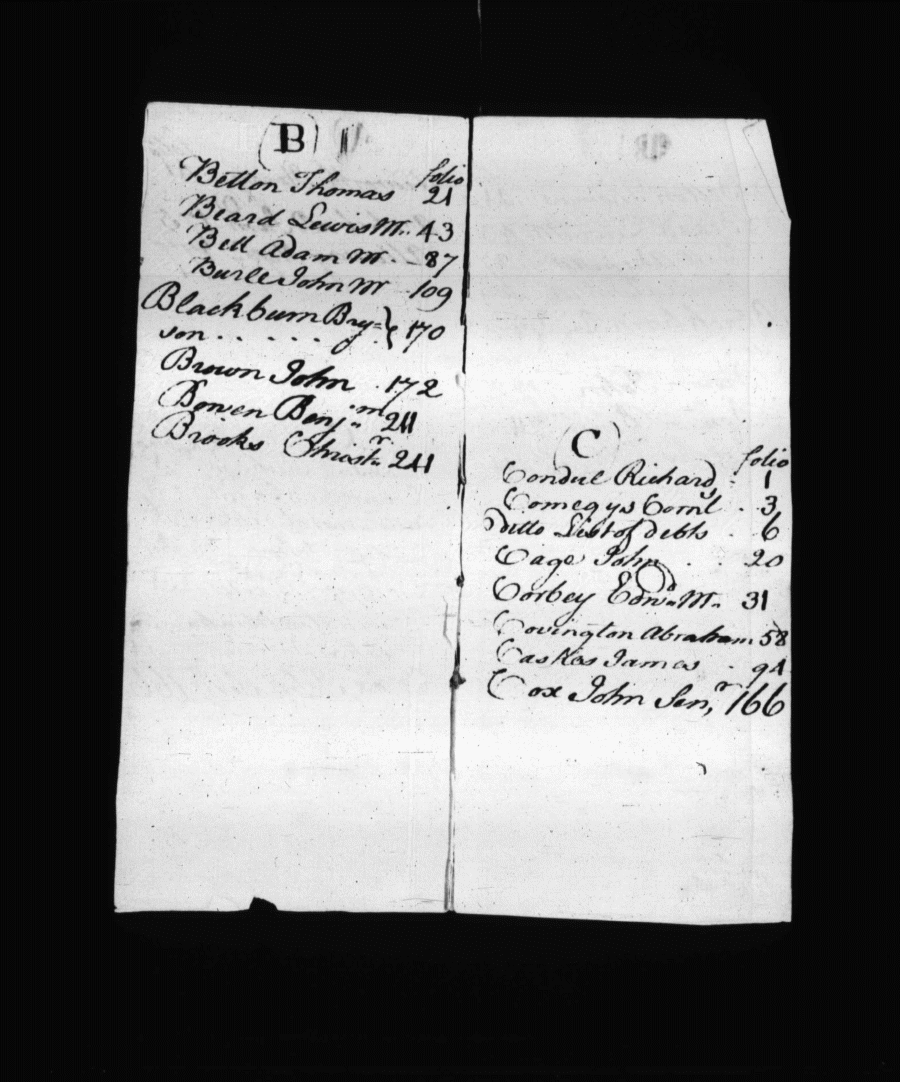 B
folio
Betton Thomas 21
Beard Lewis M.. 43
Bell Adam M. - 87
Burle John M 109
Blackburn Bry= } 170
son . . . . .
Brown John . 172
Bowen Benj.m 211
Brooks Christr 241
C
folio
Condul Richard . 1
Comegys Cornls . 3
Ditto List of debts . 6
Cage John . . 20
Corbey Edwd M.. 31
Covington Abraham 58
Caskes James . 94
Cox John Senr, 166